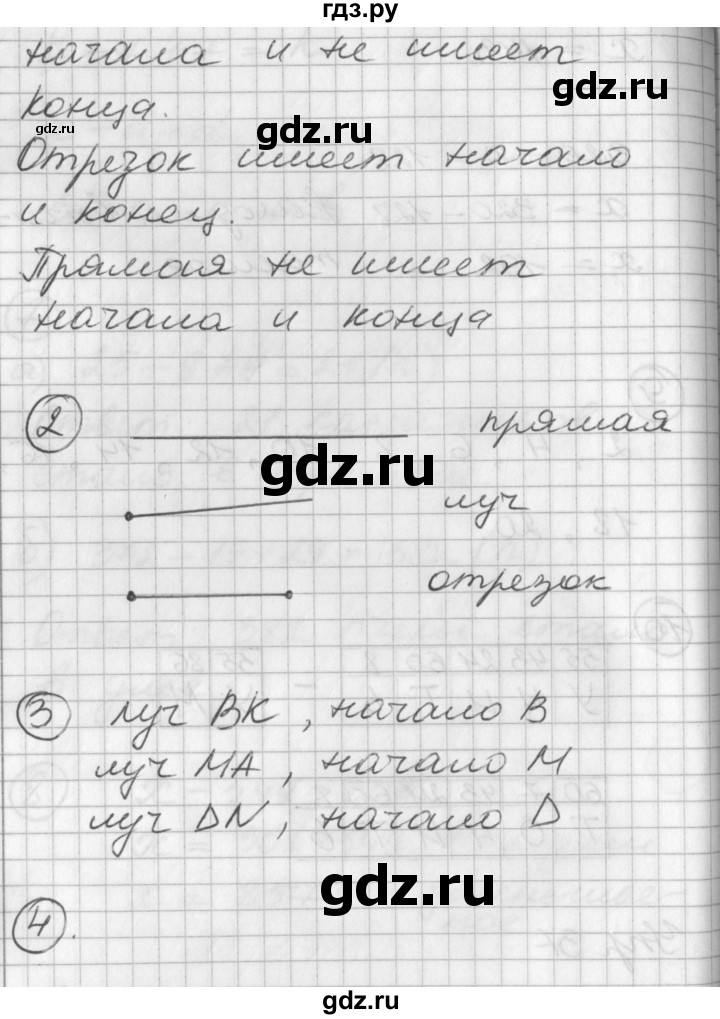 гдз.ру
начала и не имеет
gdz.ru
конца.
gdz.ru
gdz.ru
Отрезок имеет начало
и конец.
Прямая не имеет
начала и конца
2 прямая
gdz.ru
луч
отрезок
3 луч ВК, начало В
луч МА, начало М
луч DN, начало D
gdz.ru
4.
gdz.ru